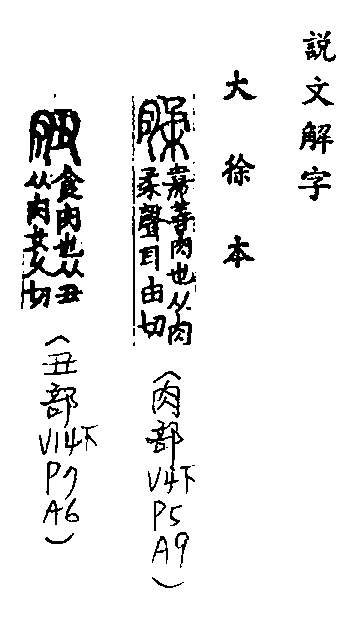 説文解字
大徐本
腬 嘉善肉也从肉
柔聲耳由切
(肉部V4下P5A9)
䏔 食肉也从丑
从肉女久切
(丑部V14下P7A6)